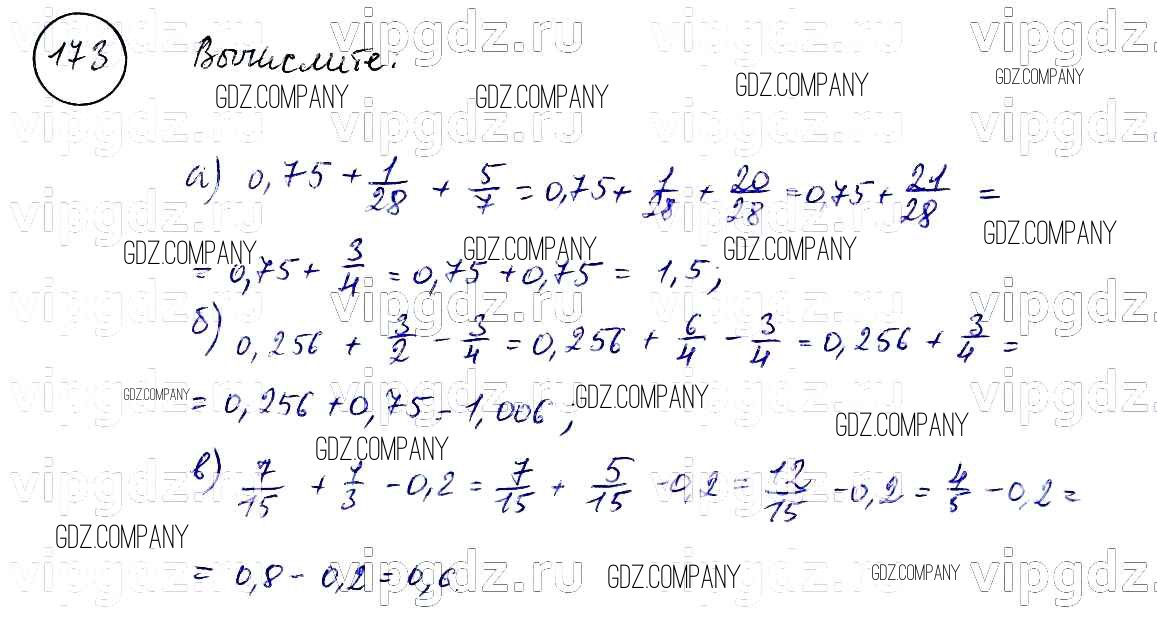 173 Вычислите:
а) 0,75 + 1/28 + 5/7 = 0,75 + 1/28 + 20/28 = 0,75 + 21/28 =
= 0,75 + 3/4 = 0,75 + 0,75 = 1,5;
б) 0,256 + 3/2 - 3/4 = 0,256 + 6/4 - 3/4 = 0,256 + 3/4 =
= 0,256 + 0,75 = 1,006;
в) 7/15 + 1/3 - 0,2 = 7/15 + 5/15 - 0,2 = 12/15 - 0,2 = 4/5 - 0,2 =
= 0,8 - 0,2 = 0,6
vipgdz.ru
GDZ.COMPANY